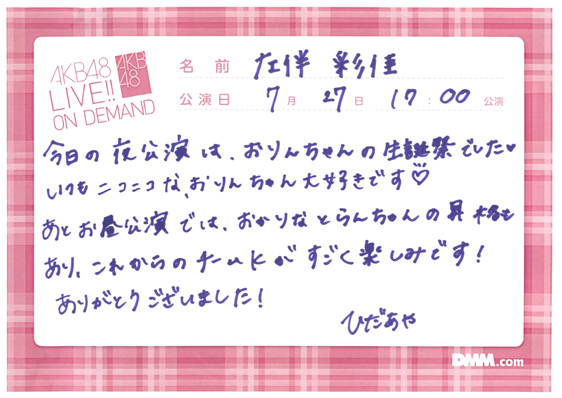 AKB48
LIVE!!
ON DEMAND
AKB
48
名前 左伴 彩佳
公演日 7月 27日 17:00 公演
今日の夜公演は、おりんちゃんの生誕祭でした♥
いつもニコニコな、おりんちゃん大好きです♡
あとお昼公演では、おかりなとらんちゃんの昇格も
あり、これからのチームKがすごく楽しみです!
ありがとうございました!
ひだあや
DMM.com